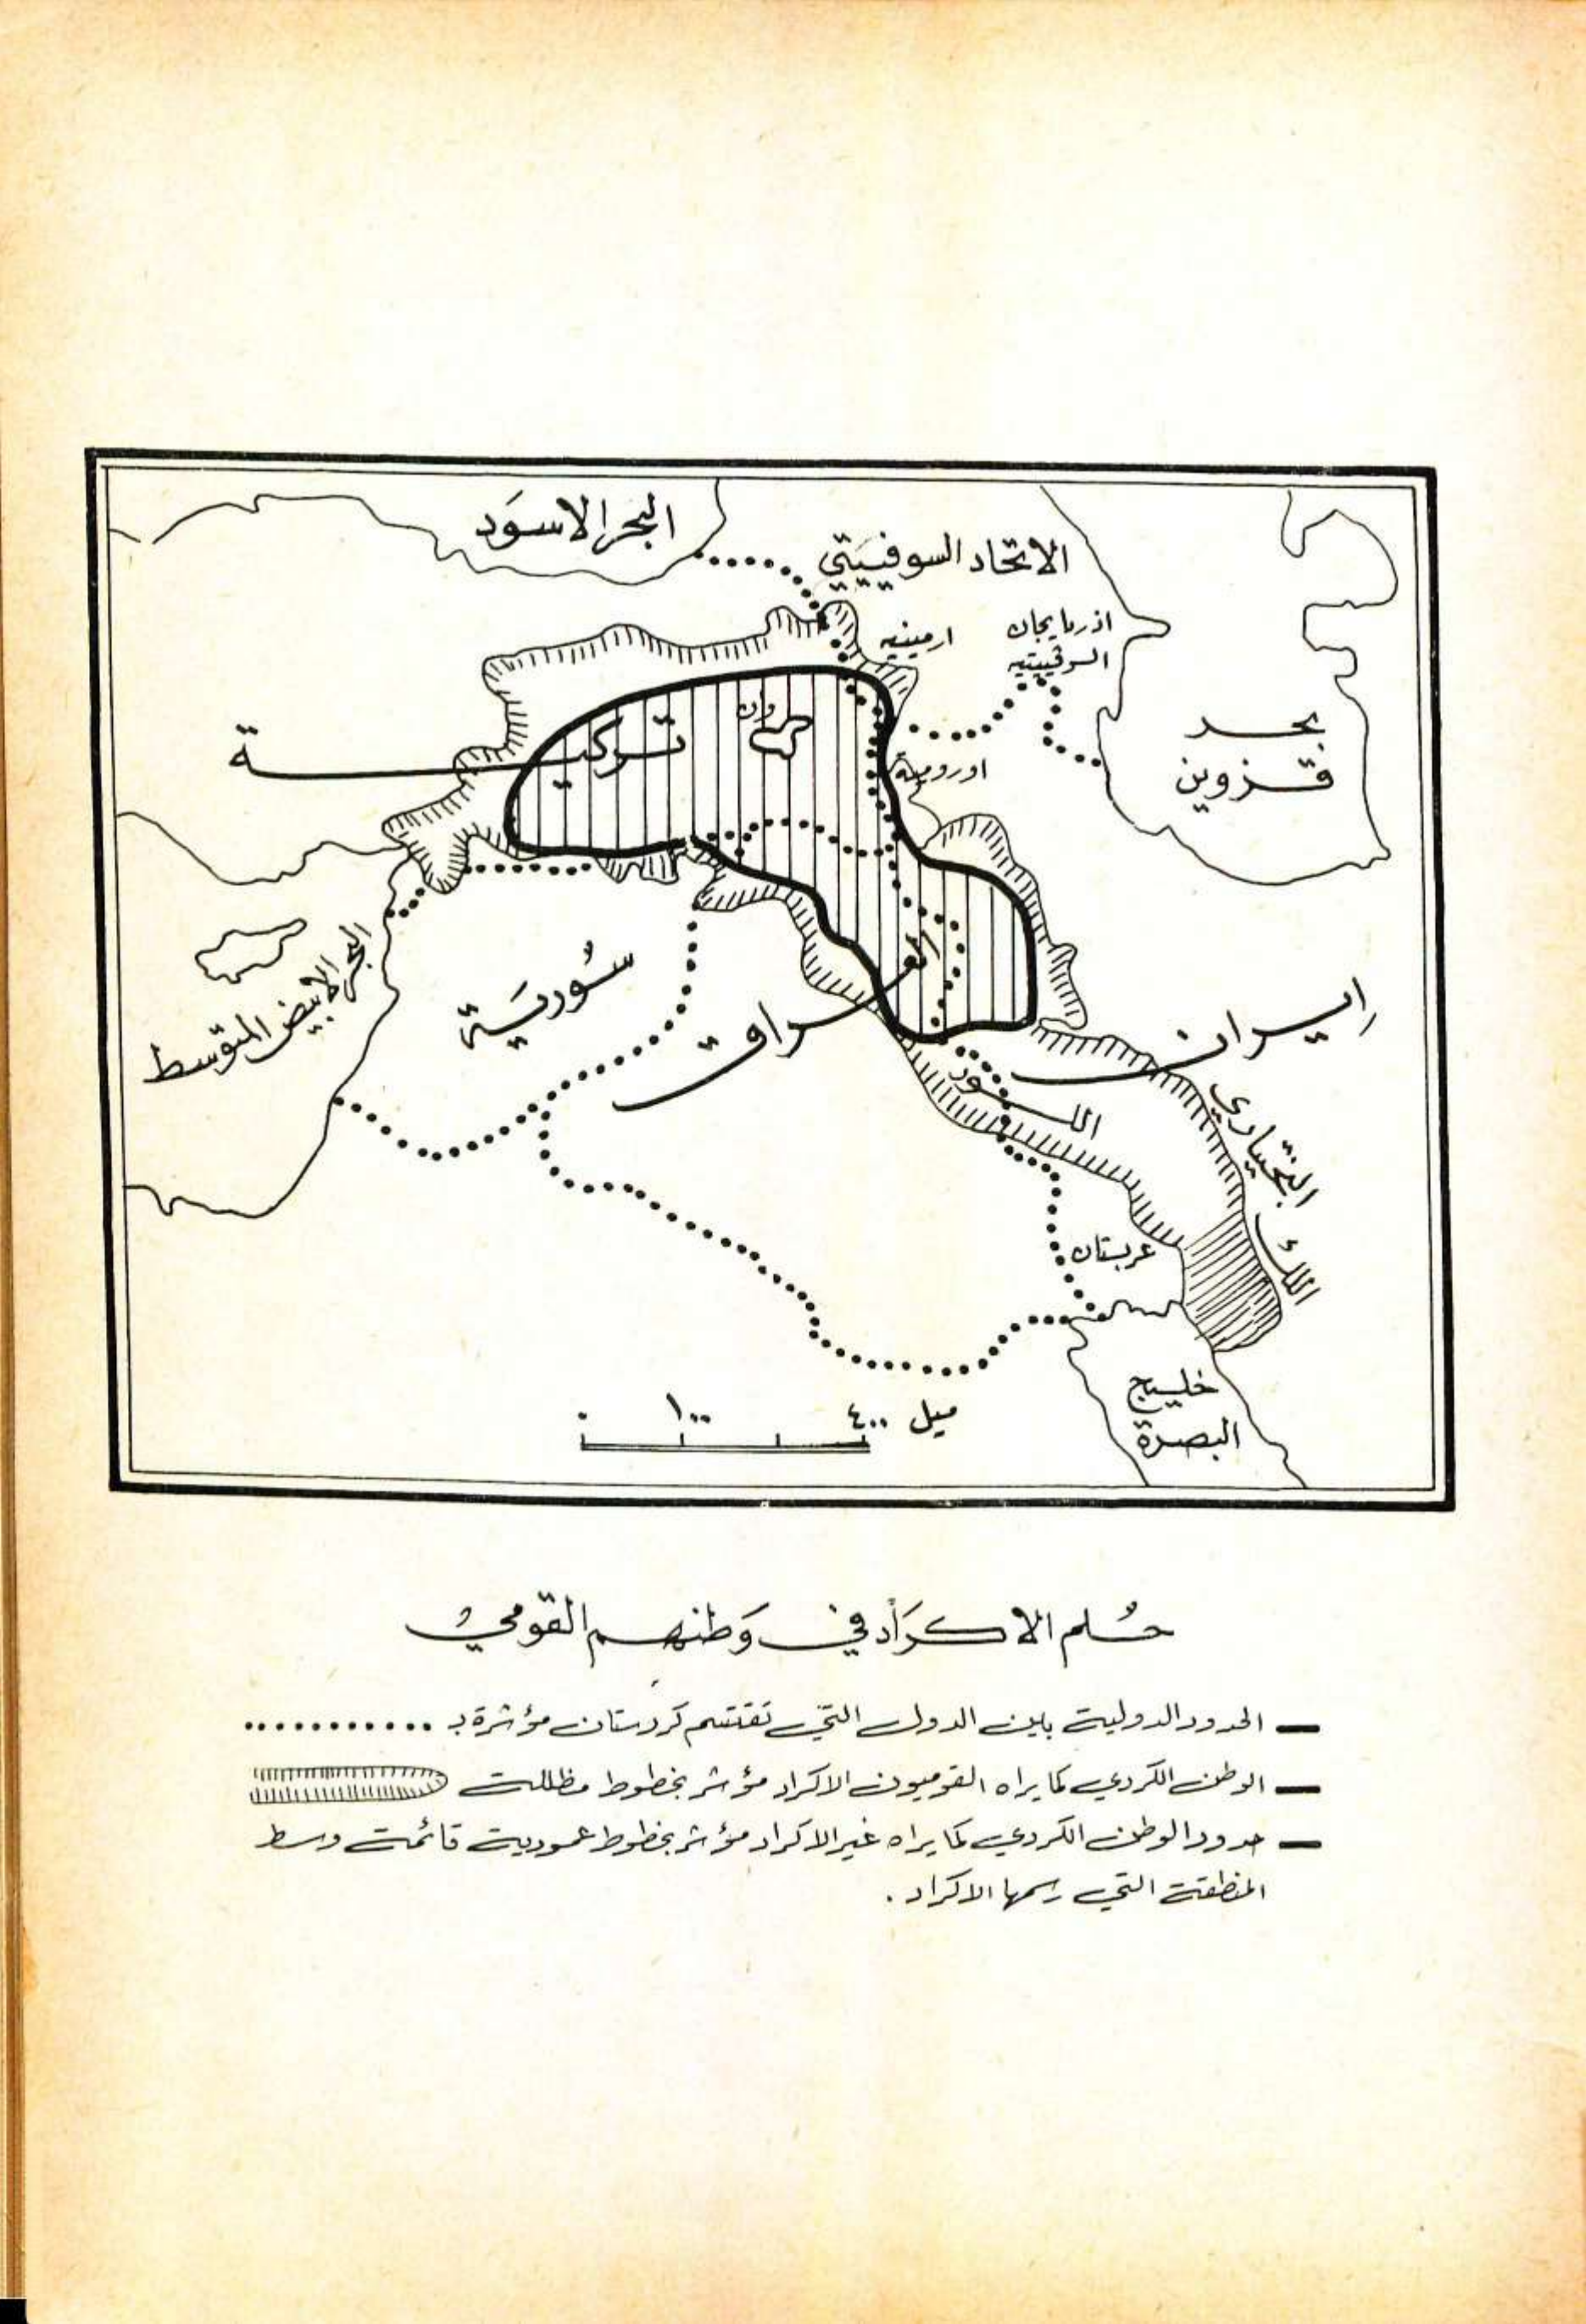 البحر الاسوَد
الاتحاد السوفييتي
ارمينيه
اذربايجان
السوفييتيه
بحر
قزوين
وان
تركيــة
اوروميه
البحر الابيض المتوسط
سُوريَة
عراق
ايران
اللور
البختياري
اللك
عربستان
خليج
البصرة
٠ ١٠٠ ٤٠٠ ميل
حُلم الاكرَاد في وَطنهم القومي
— الحدود الدولية بين الدول التي تقتسم كردستان مؤشرة بـ ............
— الوطن الكردي كما يراه القوميون الاكراد مؤشر بخطوط مظللة
— حدود الوطن الكردي كما يراه غير الاكراد مؤشر بخطوط عمودية قائمة وسط
المنطقة التي رسمها الاكراد .